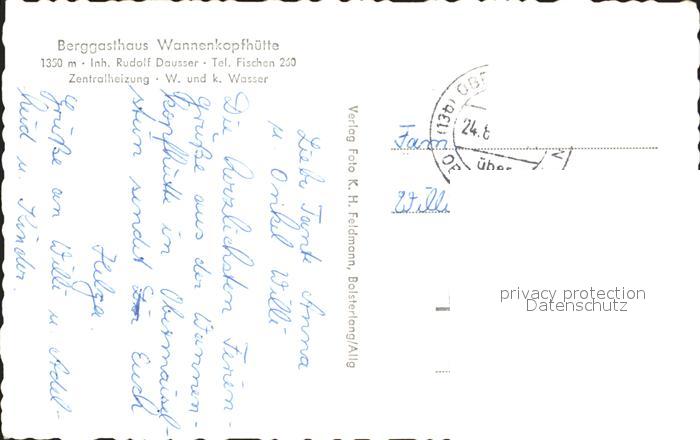 Berggasthaus Wannenkopfhütte
1350 m · Inh. Rudolf Dausser · Tel. Fischen 260
Zentralheizung · W. und k. Wasser
Liebe Tante Anna
u. Onkel Willi
Die herzlichsten Ferien-
grüße aus der Wannen-
kopfhütte in Obermaisel-
stein sendet Euch
Helga.
Grüße an Willi u. Adel-
heid u. Kinder.
Verlag Foto K. H. Feldmann, Bolsterlang/Allg
(13b) OBE
24.8
über
Fam
Willi
privacy protection
Datenschutz